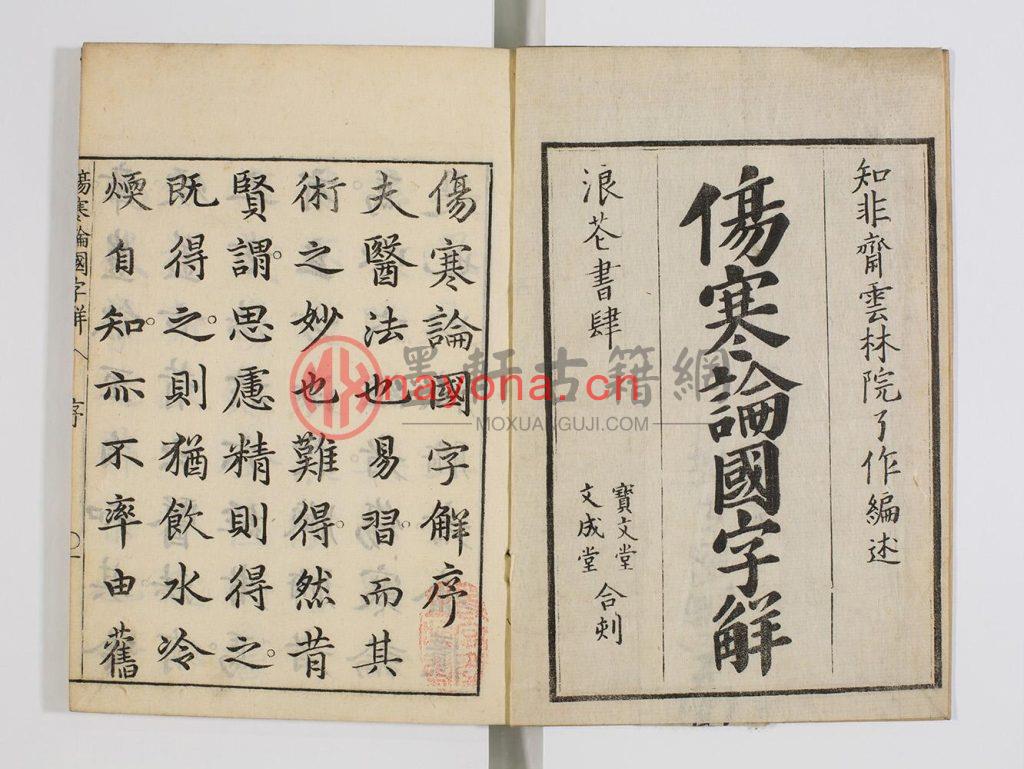 知非齋雲林院了作編述
傷寒論國字解
浪芲書肆
寶文堂
文成堂
合刻
傷寒論國字解序
夫醫法也易習而其
術之妙也難得。然昔
賢謂。思慮精則得之。
既得之。則猶飲水冷
煗自知。亦不率由舊
傷寒論國字解
序
墨軒古籍網
mayona.cn
MOXUANGUJI.COM